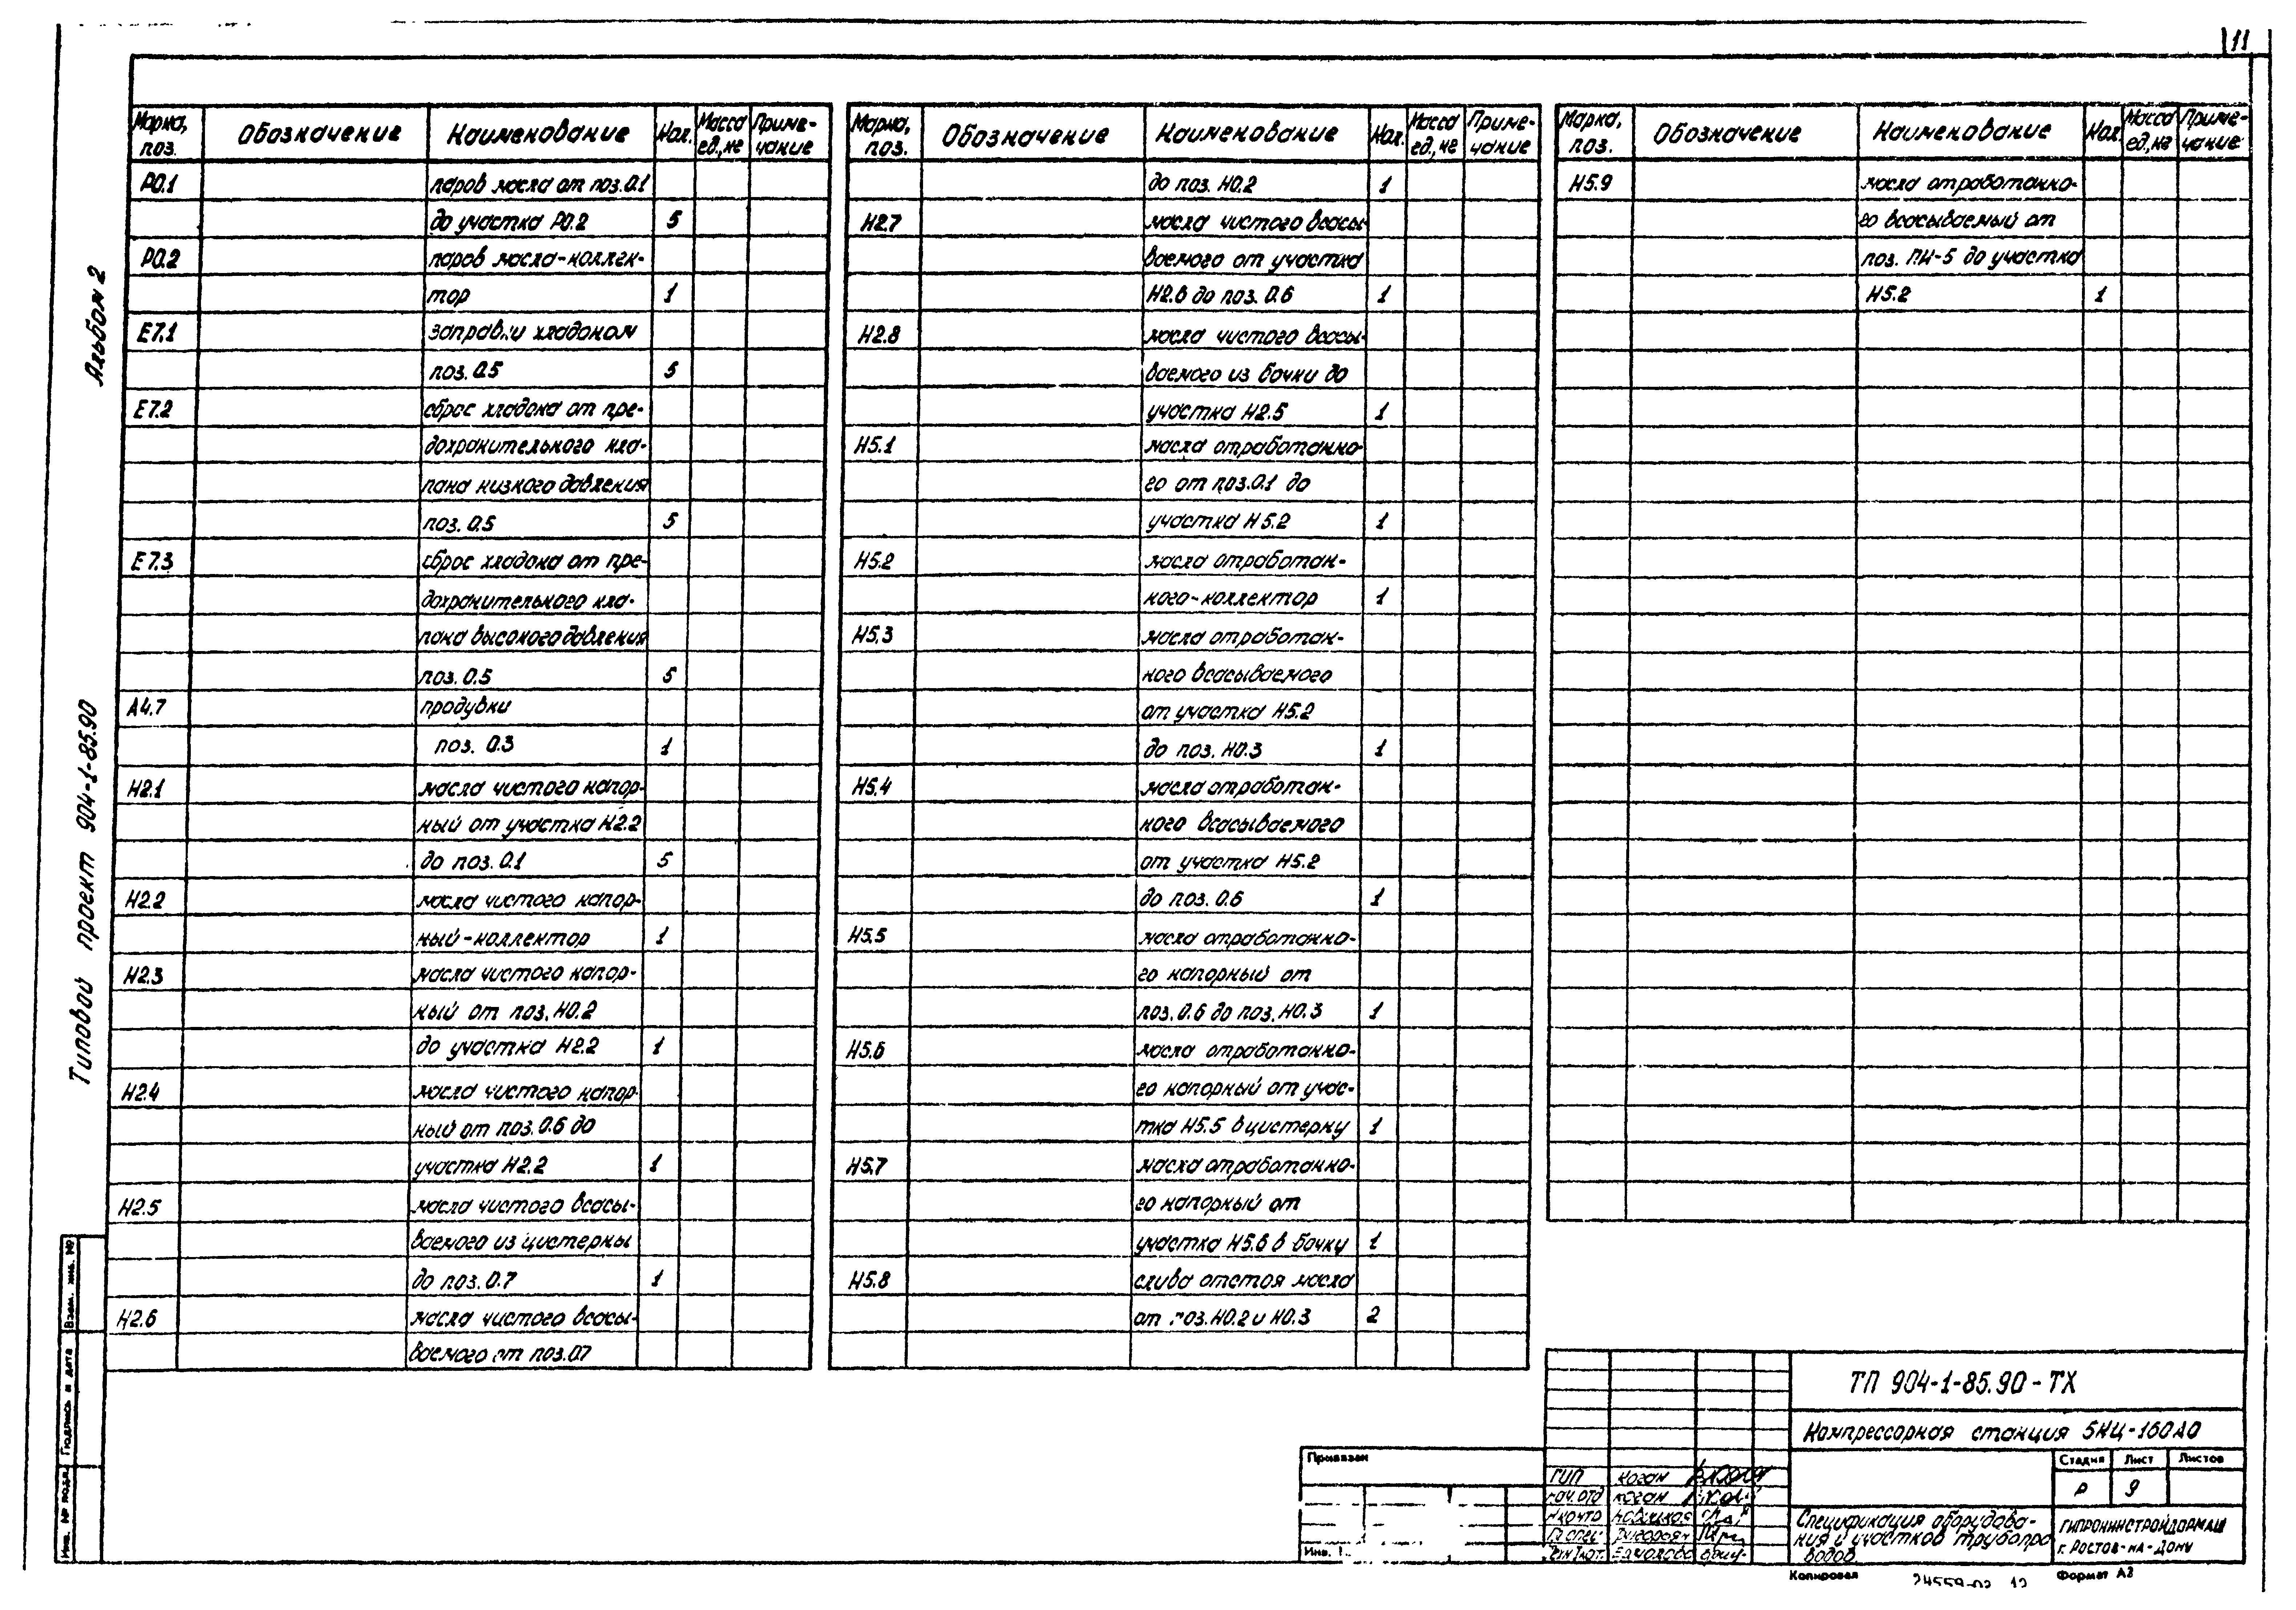 11
Альбом 2
Типовой проект 904-1-85.90
Марка, поз. Обозначение Наименование Кол. Масса ед., кг Приме-чание
Р0.1 паров масла от поз. 0.1
до участка Р0.2 5
Р0.2 паров масла-коллек-
тор 1
Е7.1 заправки хладоном
поз. 0.5 5
Е7.2 сброс хладона от пре-
дохранительного кла-
пана низкого давления
поз. 0.5 5
Е7.3 сброс хладона от пре-
дохранительного кла-
пана высокого давления
поз. 0.5 5
А4.7 продувки
поз. 0.3 1
Н2.1 масла чистого напор-
ный от участка Н2.2
до поз. 0.1 5
Н2.2 масла чистого напор-
ный-коллектор 1
Н2.3 масла чистого напор-
ный от поз. Н0.2
до участка Н2.2 1
Н2.4 масла чистого напор-
ный от поз. 0.6 до
участка Н2.2 1
Н2.5 масла чистого всасы-
ваемого из цистерны
до поз. 0.7 1
Н2.6 масла чистого всасы-
ваемого от поз. 07
Марка, поз. Обозначение Наименование Кол. Масса ед., кг Приме-чание
до поз. Н0.2 1
Н2.7 масла чистого всасы-
ваемого от участка
Н2.6 до поз. 0.6 1
Н2.8 масла чистого всасы-
ваемого из бочки до
участка Н2.5 1
Н5.1 масла отработанно-
го от поз. 0.1 до
участка Н5.2 1
Н5.2 масла отработан-
ного-коллектор 1
Н5.3 масла отработан-
ного всасываемого
от участка Н5.2
до поз. Н0.3 1
Н5.4 масла отработан-
ного всасываемого
от участка Н5.2
до поз. 0.6 1
Н5.5 масла отработанно-
го напорный от
поз. 0.6 до поз. Н0.3 1
Н5.6 масла отработанно-
го напорный от учас-
тка Н5.5 в цистерну 1
Н5.7 масла отработанно-
го напорный от
участка Н5.6 в бочку 1
Н5.8 слива отстоя масла
от поз. Н0.2 и Н0.3 2
Марка, поз. Обозначение Наименование Кол. Масса ед., кг Приме-чание
Н5.9 масла отработанно-
го всасываемый от
поз. ПН-5 до участка
Н5.2 1
Взам. инв. №
Подпись и дата
Инв. № подл.
Привязан
Инв.
ГИП Коган
Нач. отд Коган
Н.контр
Гл. спец.
ТП 904-1-85.90-ТХ
Компрессорная станция 5КЦ-160А0
Стадия Лист Листов
Р 9
Спецификация оборудова-
ния и участков трубопро-
водов
ГИПРОНИИСТРОЙДОРМАШ
г. Ростов-на-Дону
Копировал 24559-02 12 Формат А2